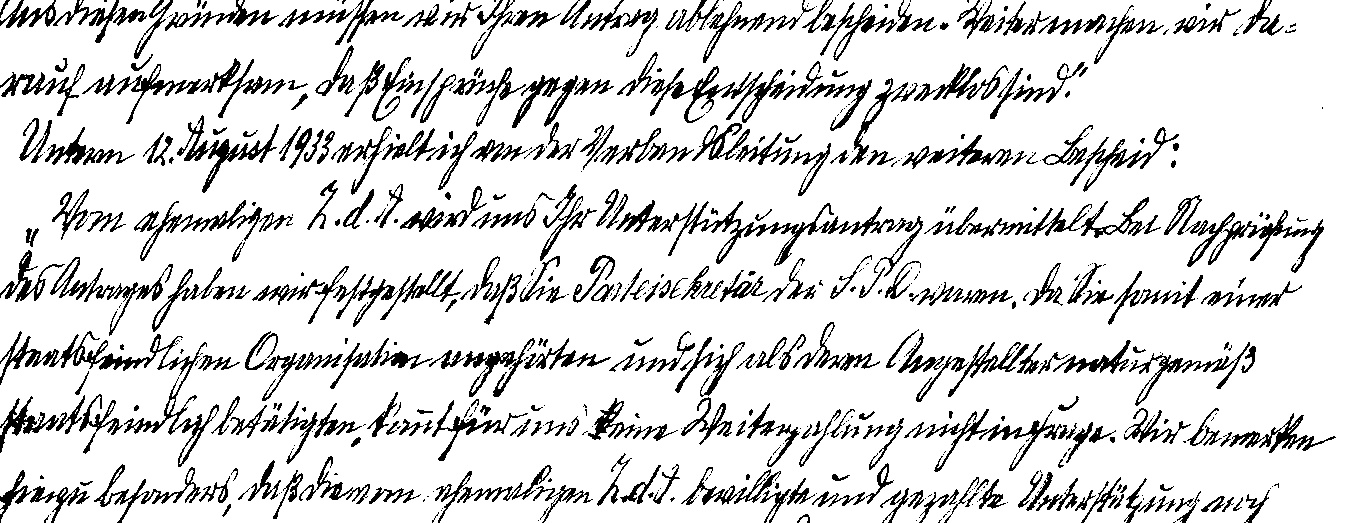 Aus diesen Gründen müssen wir Ihren Antrag ablehnend bescheiden. Weiter machen wir da-
rauf aufmerksam, daß Einsprüche gegen diese Entscheidung zwecklos sind."
Unterm 12. August 1933 erhielt ich von der Verbandsleitung den weiteren Bescheid:
„Vom ehemaligen Z.d.A. wird uns Ihr Unterstützungsantrag übermittelt. Bei Nachprüfung
des Antrages haben wir festgestellt, daß Sie Parteisekretär der S.P.D. waren. Da Sie somit einer
staatsfeindlichen Organisation angehörten und sich als deren Angestellter naturgemäß
staatsfeindlich betätigten, kommt für uns keine Weiterzahlung nicht infrage. Wir bemerken
hierzu besonders, daß die vom ehemaligen Z.d.A. bewilligte und gezahlte Unterstützung noch